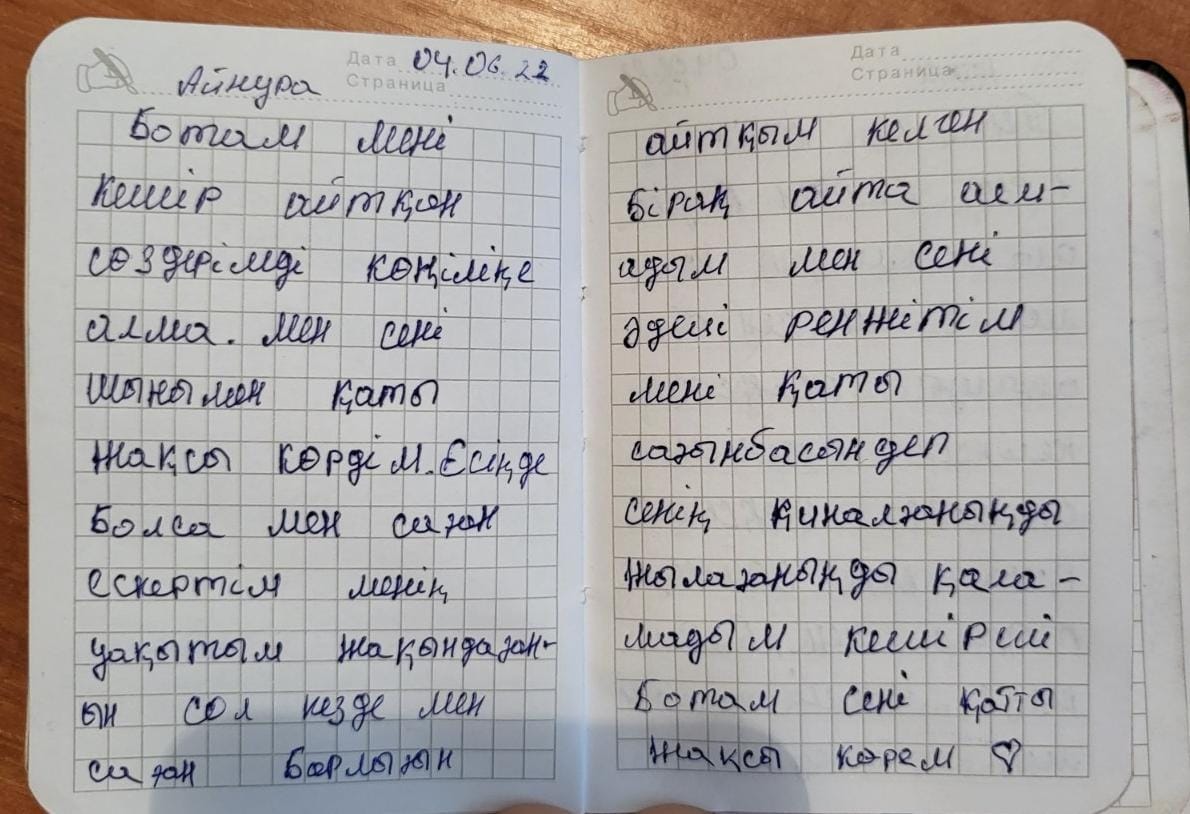 Дата 04.06.22
Страница
Айнура
Ботам мені
кешір айтқан
сөздерімді көңіліңе
алма. мен сені
шынымен қаты
жақсы көрдім. Есіңде
болса мен саған
ескертім менің
уақытым жақындаған-
ын сол кезде мен
саған барлығын
Дата
Страница
айтқым келген
бірақ айта алм-
адым мен сені
әдейі ренжітім
мені қаты
сағынбасын деп
сенің қиналғаныңды
жылағаныңды қала-
мадым кешірші
Ботам сені қатты
жақсы көрем ♡